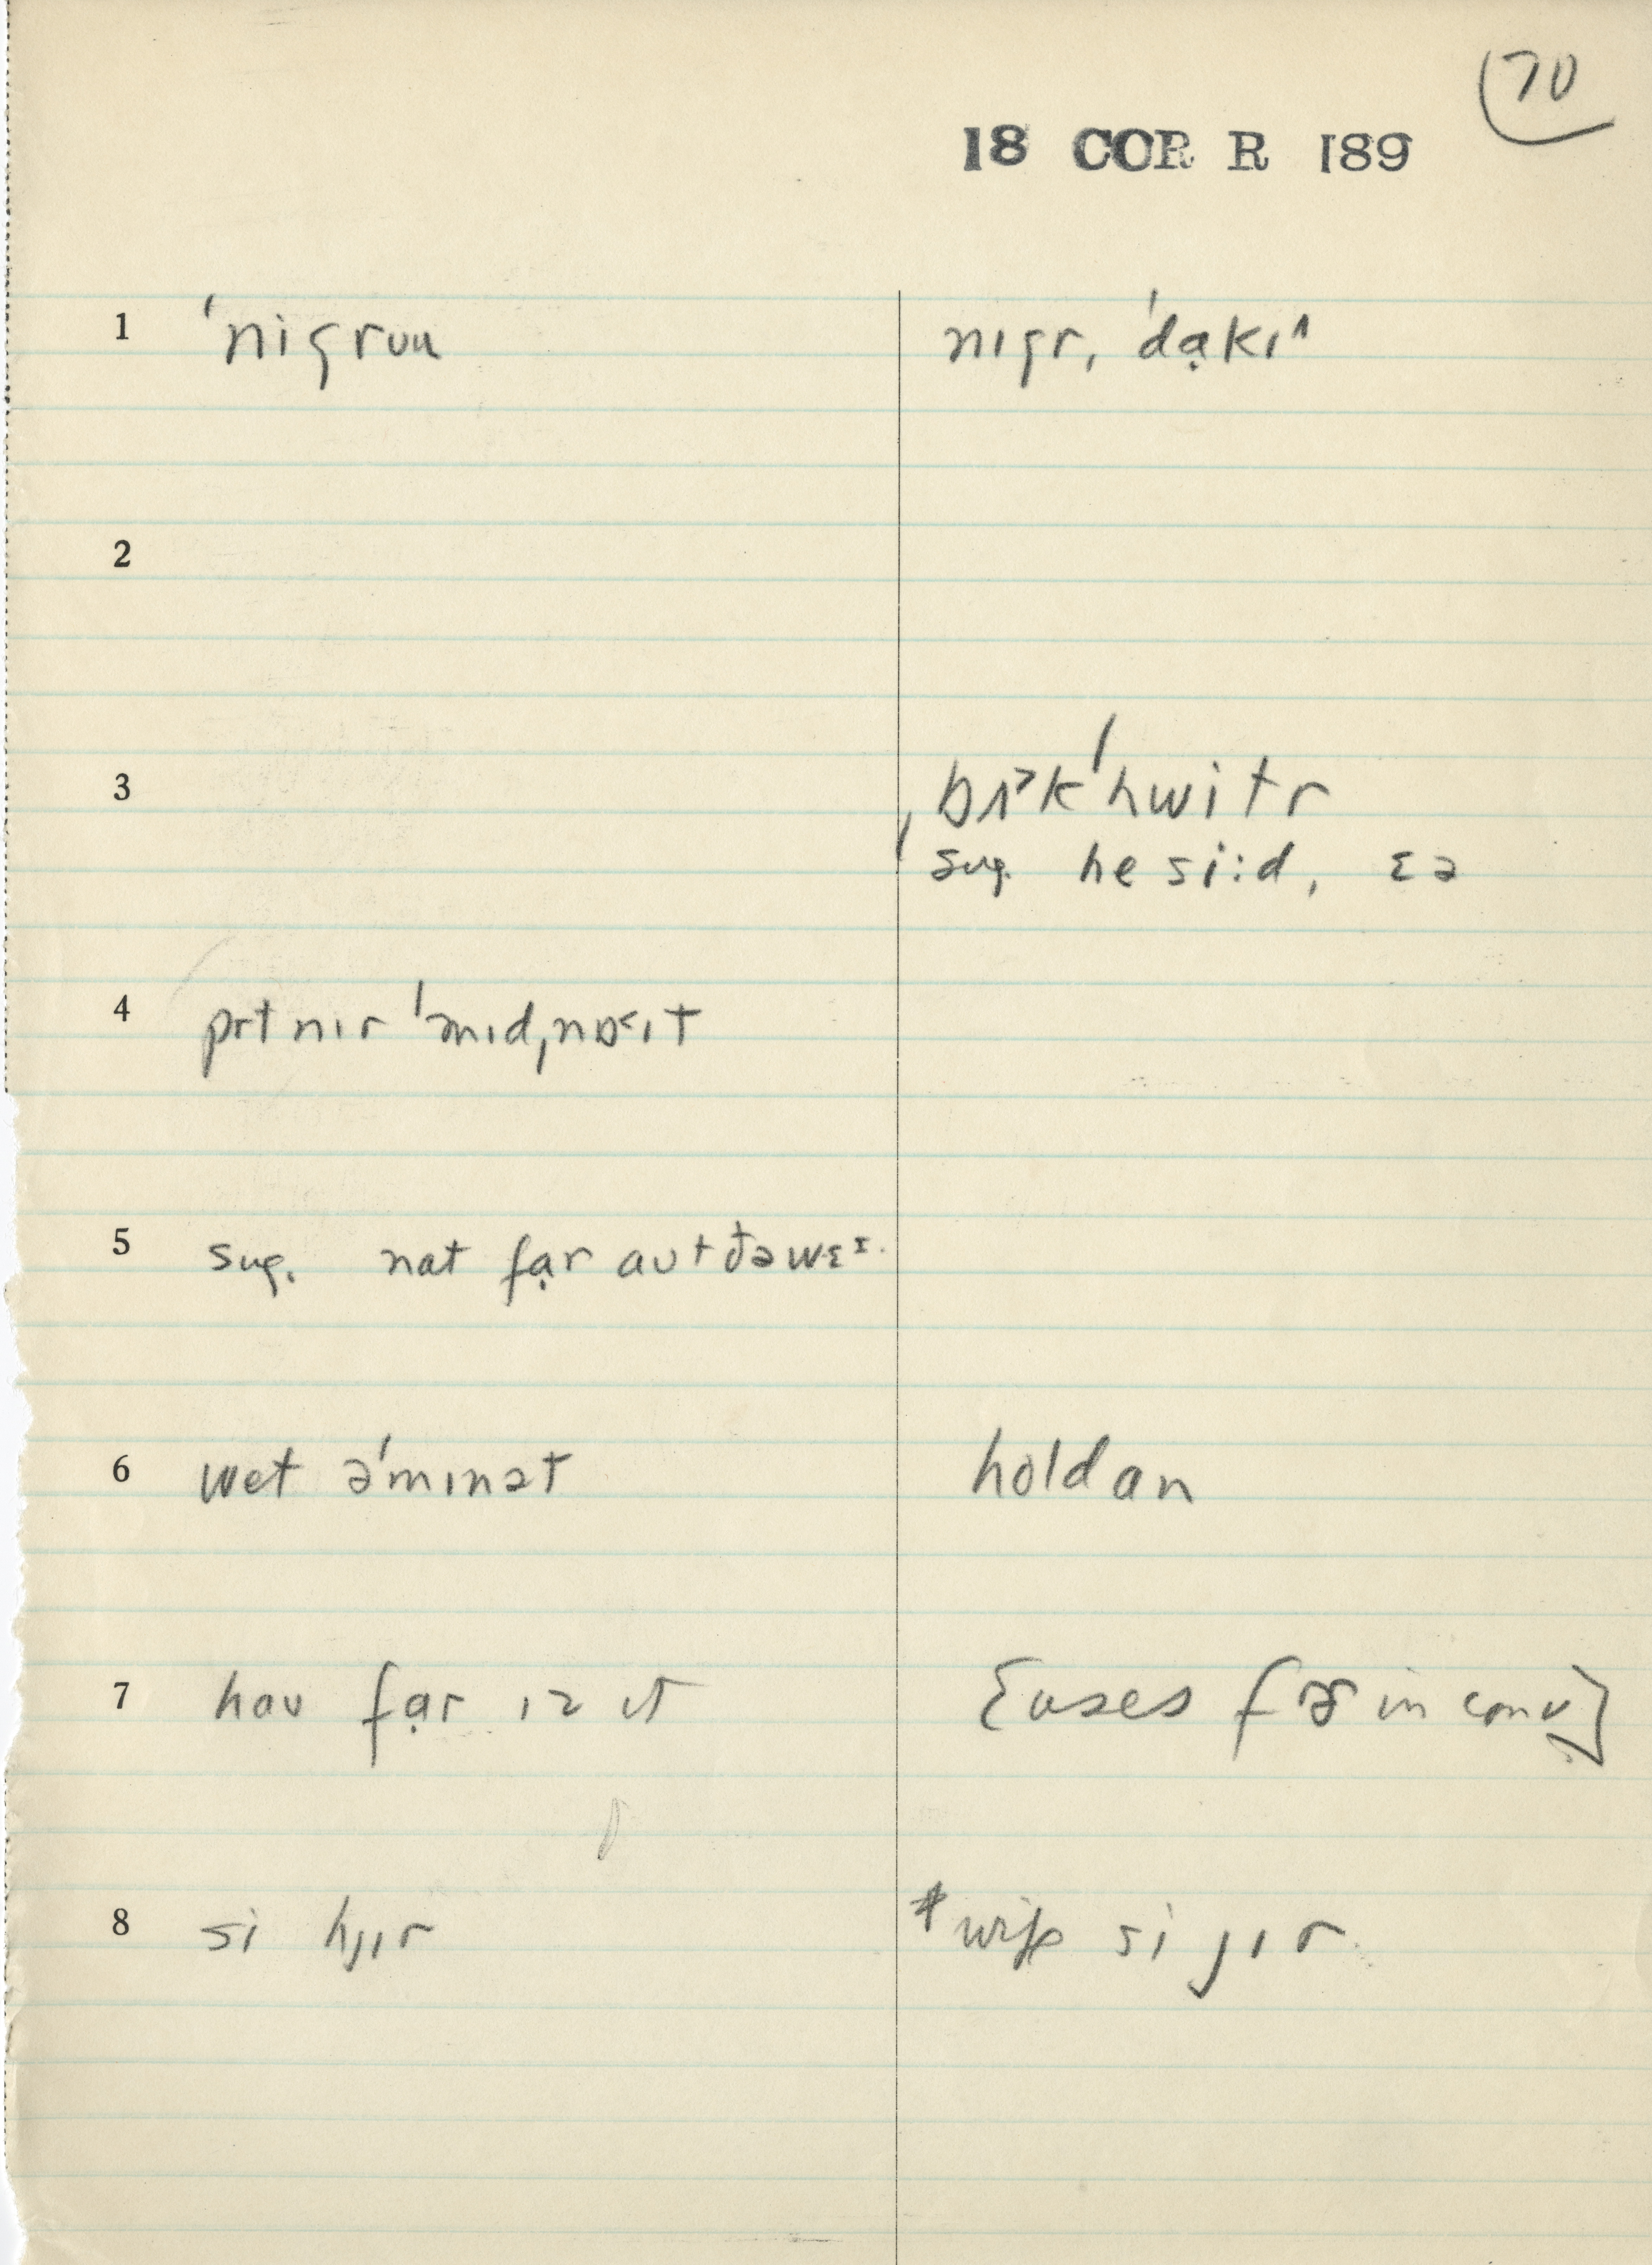 70
18 COR R 189
1 ˈnigrou nɪgr, ˈdạkɪ^
2
3 ˌbɑ˃kˈhwitr
sug. he si:d, ɛə
4 prtnɪr ˈmɪdˌnɒ˂ɪt
5 sug. nat fạr aut ðəwɛɪ
6 wet əˈmɪnət holdan
7 hau fạr ɪz ɪt [uses fɚ in conv]
8 si hjɪr *wife si jɪr